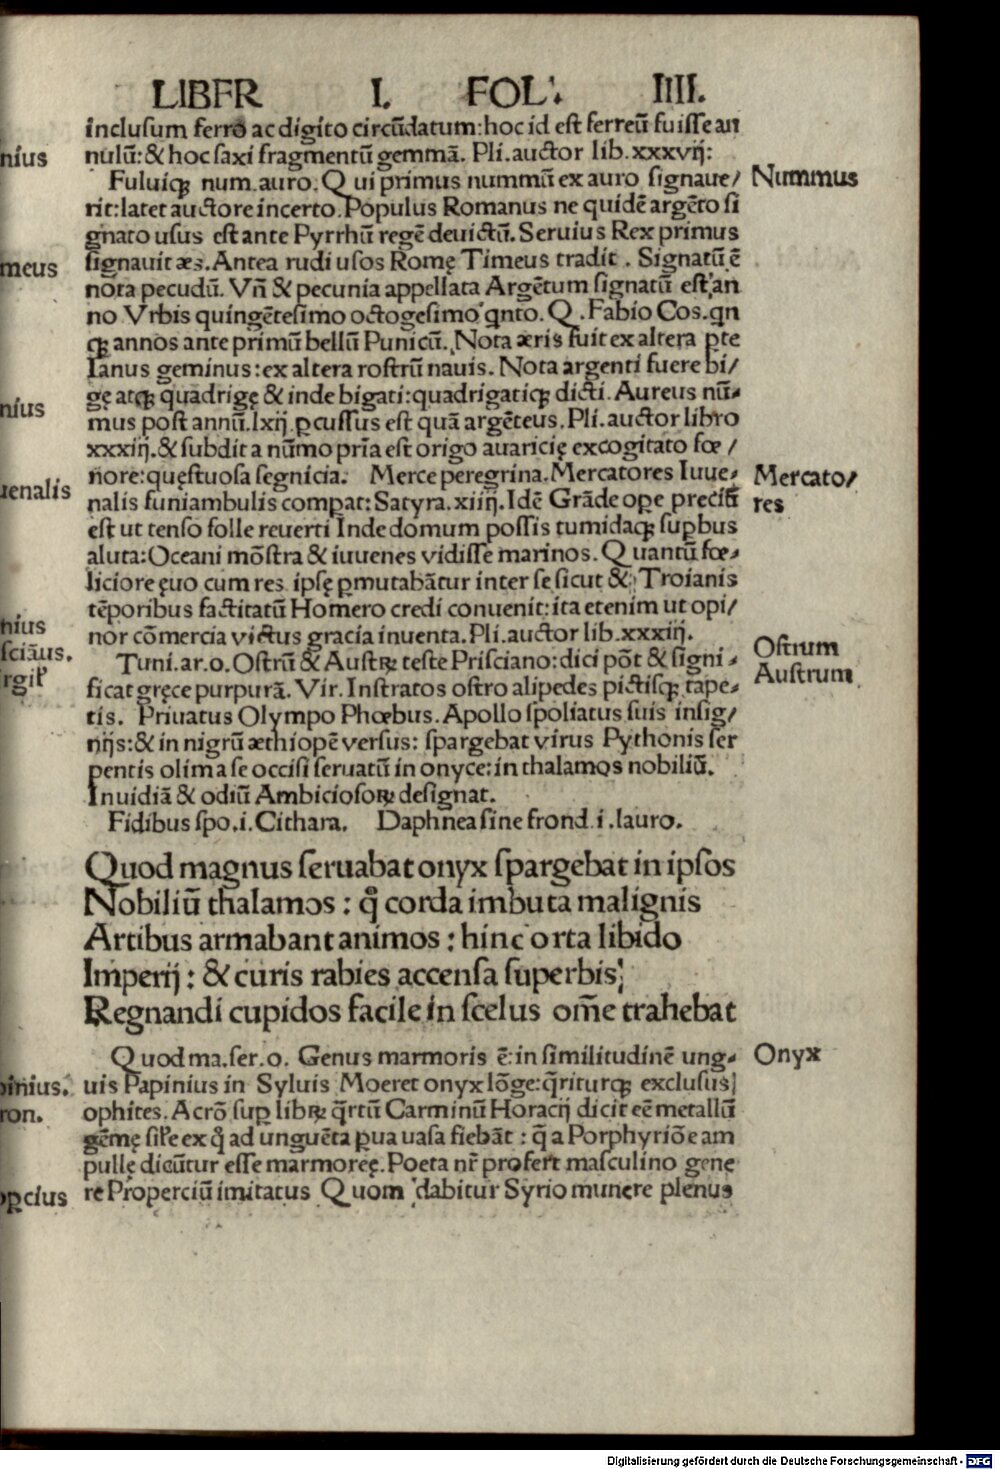 LIBER I. FOL. IIII.
inclusum ferro ac digito circũdatum: hoc id est ferreũ fuisse an
nulũ: & hoc saxi fragmentũ gemmã. Pli. auctor lib. xxxvij:
nius
Fuluiqꝫ num. auro. Qui primus nummũ ex auro signaue/
Nummus
rit: latet auctore incerto. Populus Romanus ne quidẽ argẽto si
gnato usus est ante Pyrrhũ regẽ deuictũ. Seruius Rex primus
signauit æs. Antea rudi usos Romę Timeus tradit. Signatũ ẽ
meus
nota pecudũ. Vñ & pecunia appellata Argẽtum signatũ est: an
no Vrbis quingẽtesimo octogesimo qnto. Q. Fabio Cos. qn
qꝫ annos ante primũ bellũ Punicũ. Nota æris fuit ex altera pte
Ianus geminus: ex altera rostrũ nauis. Nota argenti fuere bi/
gę atqꝫ quadrigę & inde bigati: quadrigatiqꝫ dicti. Aureus nũ-
nius
mus post annũ. lxij. ꝑcussus est quã argẽteus. Pli. auctor libro
xxxiij. & subdit a nũmo pria est origo auaricię excogitato fœ/
nore: quęstuosa segnicia. Merce peregrina. Mercatores Iuue-
Mercato/
res
uenalis
nalis funiambulis compat: Satyra. xiiij. Idẽ Grãde opę preciũ
est ut tenso folle reuerti Inde domum possis tumidaqꝫ suꝑbus
aluta: Oceani mõstra & iuuenes vidisse marinos. Quantũ fœ-
liciore ęuo cum res ipsę ꝑmutabãtur inter se sicut & Troianis
tẽporibus factitatũ Homero credi conuenit: ita etenim ut opi/
nius
nor cõmercia victus gracia inuenta. Pli. auctor lib. xxxiij.
Tuni. ar. o. Ostrũ & Austꝝ teste Prisciano: dici põt & signi-
Ostrum
Austrum
scianus.
rgil'
ficat gręce purpurã. Vir. Instratos ostro alipedes pictisqꝫ tape-
tis. Priuatus Olympo Phœbus. Apollo spoliatus suis insig/
nijs: & in nigrũ æthiopẽ versus: spargebat virus Pythonis ser
pentis olim a se occisi seruatũ in onyce: in thalamos nobiliũ.
Inuidiã & odiũ Ambiciosoꝝ designat.
Fidibus spo. i. Cithara. Daphnea sine frond. i. lauro.
Quod magnus seruabat onyx spargebat in ipsos
Nobiliũ thalamos: q̊ corda imbuta malignis
Artibus armabant animos: hinc orta libido
Imperij: & curis rabies accensa superbis:
Regnandi cupidos facile in scelus om̃e trahebat
Quod ma. ser. o. Genus marmoris ẽ: in similitudinẽ ung-
Onyx
pinius.
uis Papinius in Syluis Moeret onyx lõge: q̃riturqꝫ exclusus
ron.
ophites. Acrõ suꝑ libꝝ q̃rtũ Carminũ Horacij dicit eẽ metallũ
gẽmę sil'e ex q̊ ad unguẽta ꝑua uasa fiebãt: q̃ a Porphyriõe am
pullę dicũtur esse marmoreę. Poeta nr̃ profert masculino gene
opcius
re Properciũ imitatus Quom dabitur Syrio munere plenus
Digitalisierung gefördert durch die Deutsche Forschungsgemeinschaft - DFG